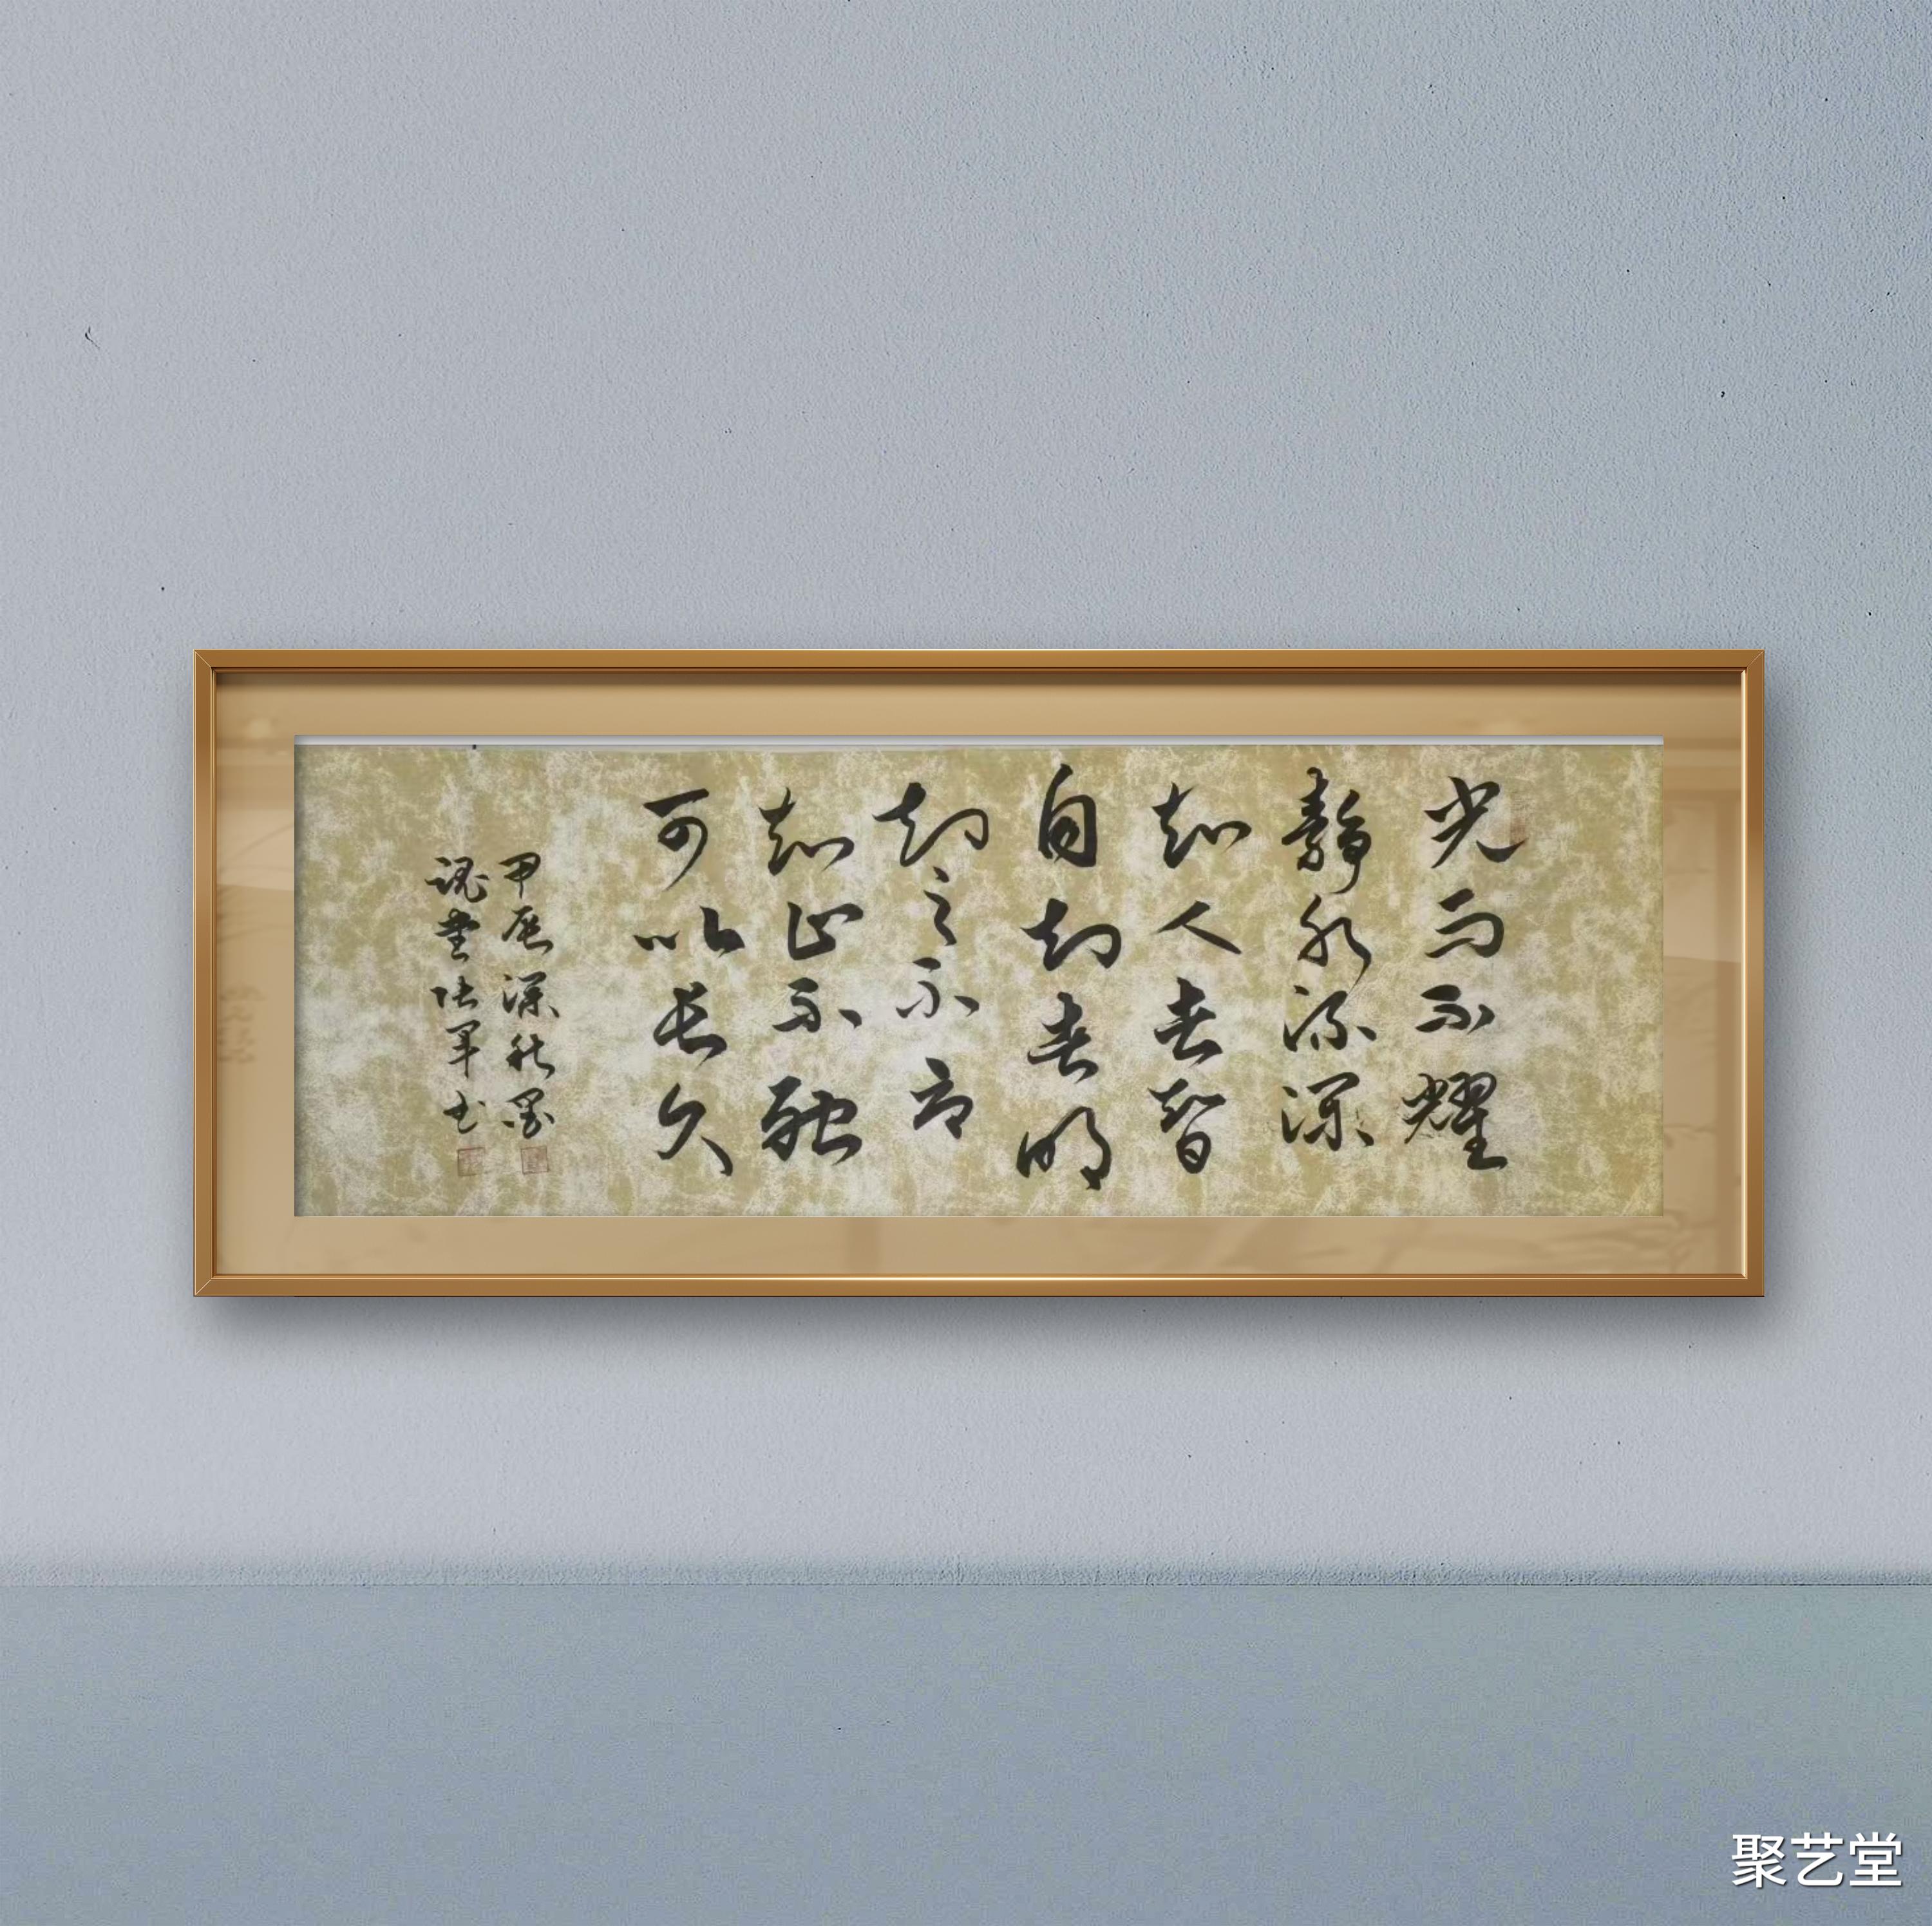 光而不耀
静水流深
知人者智
自知者明
知足不
知止不
可以长久
甲辰深秋
张军书
聚艺堂